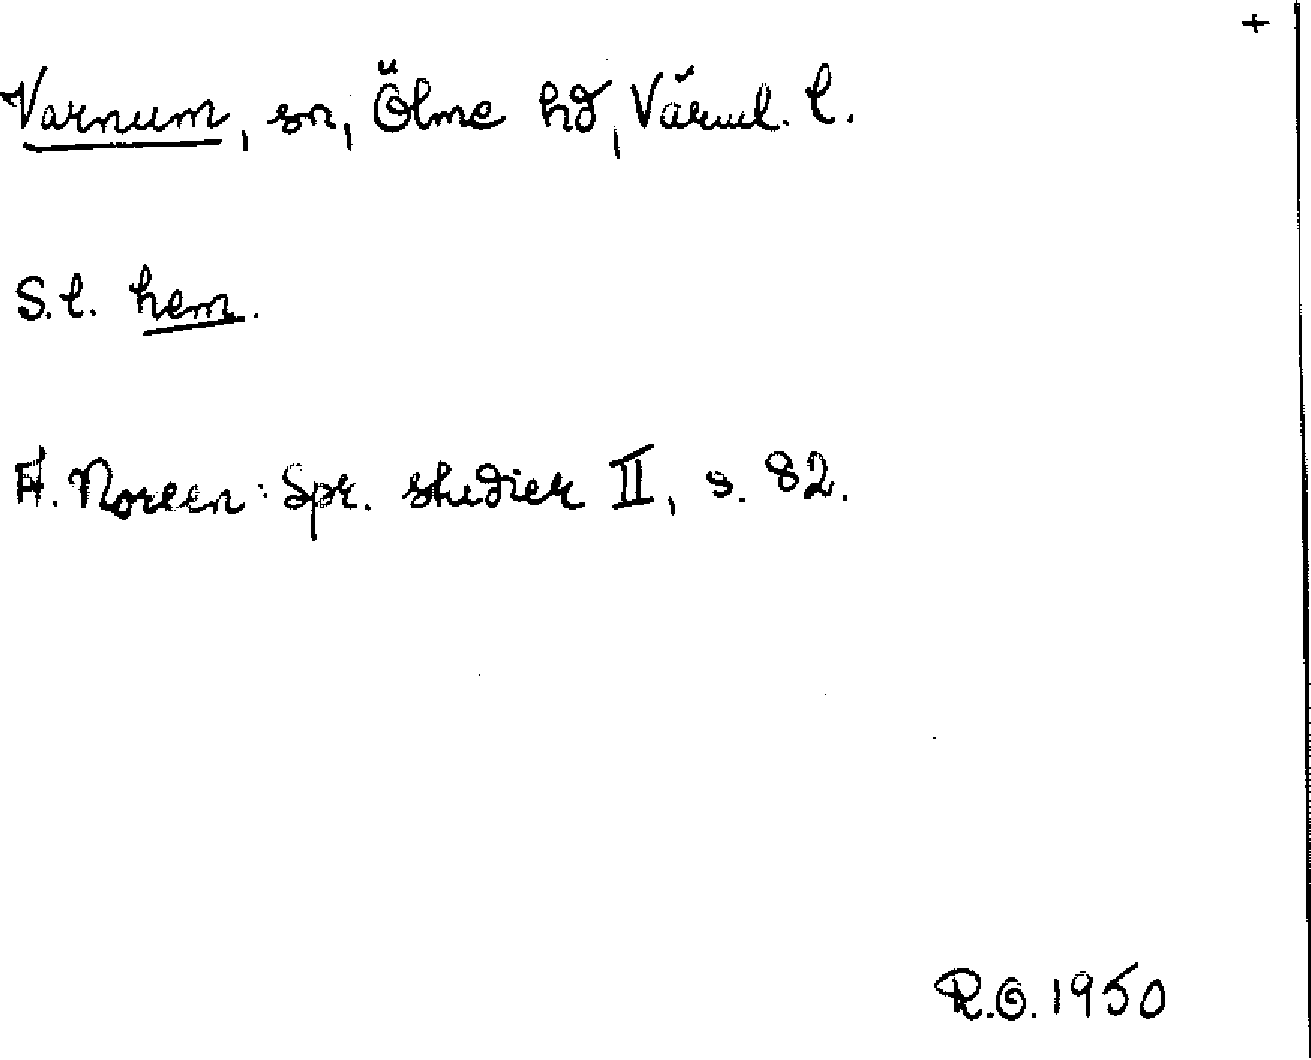 +
Varnum, sn, Ölme hd, Värml. l.
S.l. hem.
A. Noreen: Spr. studier II, s. 82.
R.O. 1950